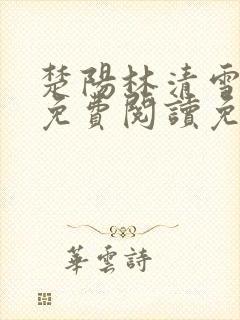 楚陽林清雪
免費閱讀免
華雲詩